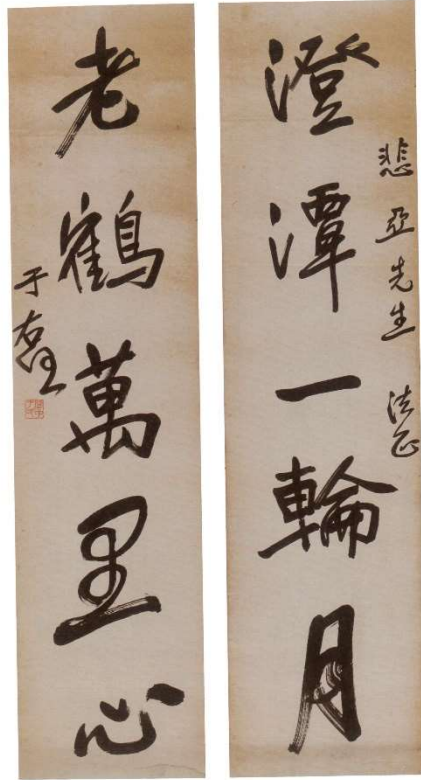 澄潭一輪月
悲亞先生 法正
老鶴萬里心
于右任